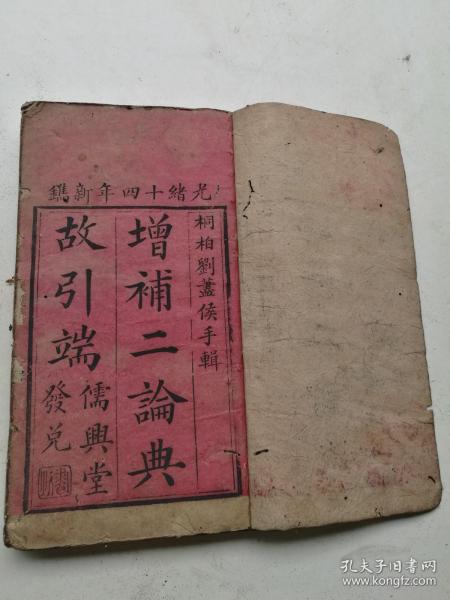 光緒十四年新鐫
桐柏劉藎侯手輯
增補二論典
故引端
儒興堂
發兌
孔夫子旧书网
www.kongfz.com